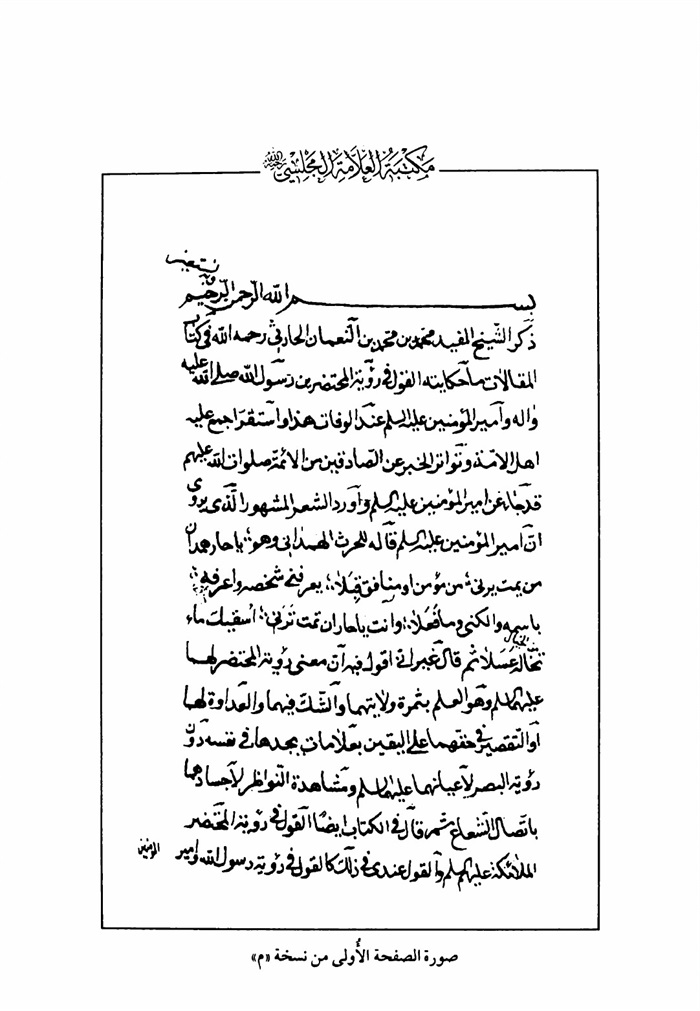 مكتبة العلامة المجلسي رحمه الله
وبه نستعين
بسم الله الرحمن الرحيم
ذكر الشيخ المفيد محمد بن محمد بن النعمان الحارثي رحمه الله في كتاب
المقالات ما حكايته القول في رؤية المحتضرين رسول الله صلى الله عليه
واله وامير المؤمنين عليه السلم عند الوفات هذا واستقر اجمع عليه
اهل الامامة وتواتر الخبر عن الصادقين من الائمة صلوات الله عليهم
قد جاء عن امير المؤمنين عليه السلم واورد الشعر المشهور الذى يروى
ان امير المؤمنين عليه السلم قاله للحرث الهمدانى وهو ؛ يا حار همدان
من يمت يرنى ؛ من مؤمن او منافق قبلا ؛ يعرفنى شخصه واعرفه ؛
باسمه والكنى وما فعلا ؛ وانت يا حار ان تمت ترنى ؛ اسقيك ماء
تخاله عسلا ثم قال غير انى اقول فيه ان معنى رؤية المحتضر لهما
عليهما السلم وهو العلم بثمرة ولايتهما والشك فيهما والعداوة لهما
او التقصير فى حقهما على اليقين بعلامات يجدها فى نفسه دون
رؤية البصر لاعيانهما عليهما السلم ومشاهدة النواظر لاجسادهما
باتصال الشعاع ثم قال فى الكتاب ايضا القول فى رؤية المحتضر
الملائكة عليهم السلم والقول عندى فى ذلك كالقول فى رؤية رسول الله وامير
المؤمنين
صورة الصفحة الأُولى من نسخة «م»